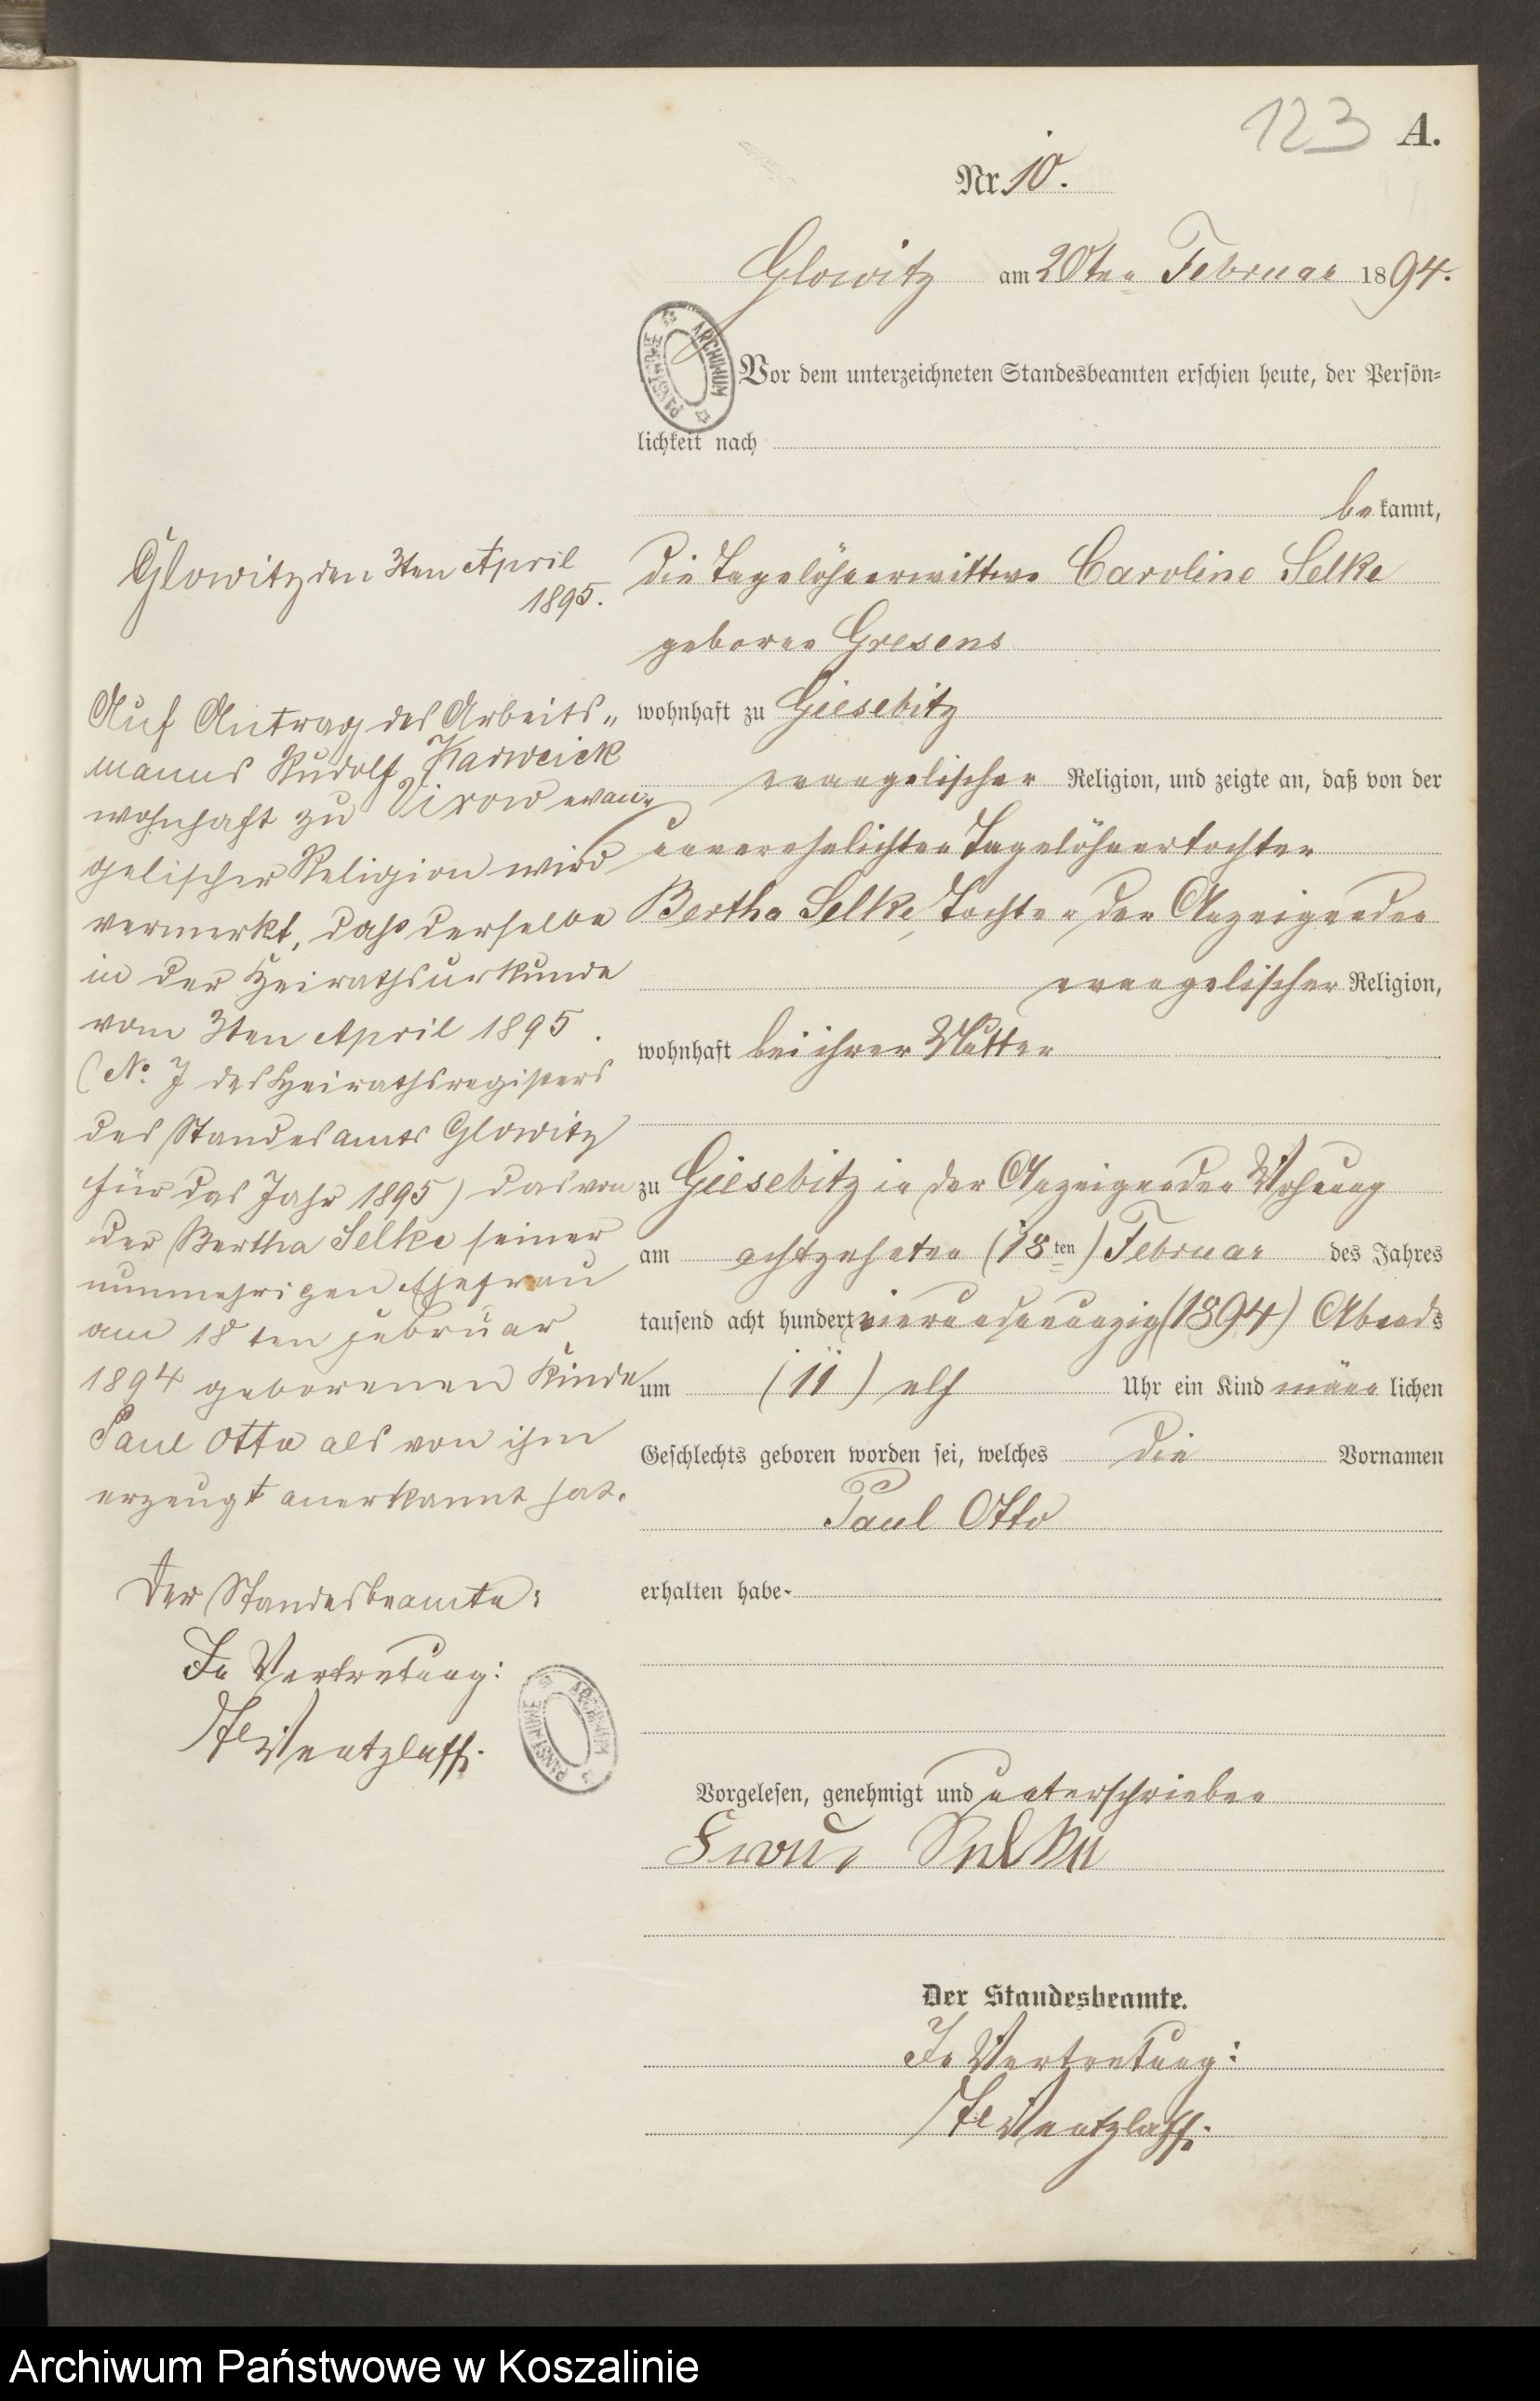 123 A.
Nr. 10.
Glowitz am 20ten Februar 1894.
ARCHIWUM PAŃSTWOWE
Vor dem unterzeichneten Standesbeamten erschien heute, der Persön=
lichkeit nach
bekannt,
die Tagelöhnerwittwe Caroline Selke
geborne Gresens
wohnhaft zu Giesebitz
evangelischer Religion, und zeigte an, daß von der
unverehelichten Tagelöhnertochter
Bertha Selke, Tochter der Anzeigenden
evangelischer Religion,
wohnhaft bei ihrer Mutter
zu Giesebitz in der Anzeigenden Wohnung
am achtzehnten (18ten) Februar des Jahres
tausend acht hundert vierundneunzig (1894) Abends
um (11) elf Uhr ein Kind männlichen
Geschlechts geboren worden sei, welches die Vornamen
Paul Otto
erhalten habe.
Vorgelesen, genehmigt und unterschrieben
Frau Selke
Der Standesbeamte.
In Vertretung:
Wentzlaff.
Glowitz den 3ten April
1895.
Auf Antrag des Arbeits„
manns Rudolf Karweick
wohnhaft zu Virow evan„
gelischer Religion wird
vermerkt, daß derselbe
in der Heirathsurkunde
vom 3ten April 1895
(No. 7 des Heirathsregisters
des Standesamts Glowitz
für das Jahr 1895) das von
der Bertha Selke seiner
nunmehrigen Ehefrau
am 18ten Februar
1894 geborenen Kinde
Paul Otto als von ihm
erzeugt anerkannt hat.
Der Standesbeamte:
In Vertretung:
Wentzlaff.
ARCHIWUM PAŃSTWOWE
Archiwum Państwowe w Koszalinie